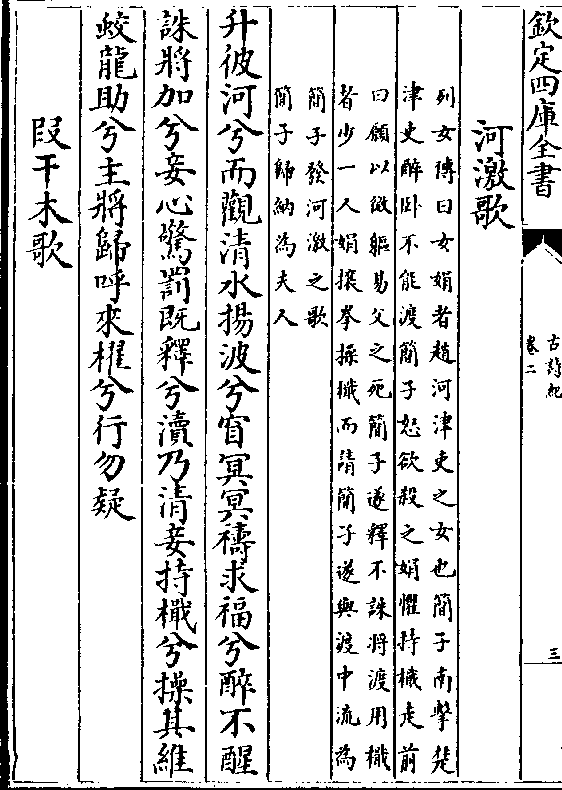 欽定四庫全書
古詩紀
卷二
三
河激歌
列女傳曰女娟者趙河津吏之女也簡子南擊楚
津吏醉卧不能渡簡子怒欲殺之娟懼持檝走前
曰願以微軀易父之死簡子遂釋不誅將渡用檝
者少一人娟攘拳操檝而請簡子遂與渡中流為
簡子發河激之歌
簡子歸納為夫人
升彼河兮而觀清水揚波兮窅冥冥禱求福兮醉不醒
誅將加兮妾心驚罰既釋兮瀆乃清妾持檝兮操其維
蛟龍助兮主將歸呼來櫂兮行勿疑
段干木歌